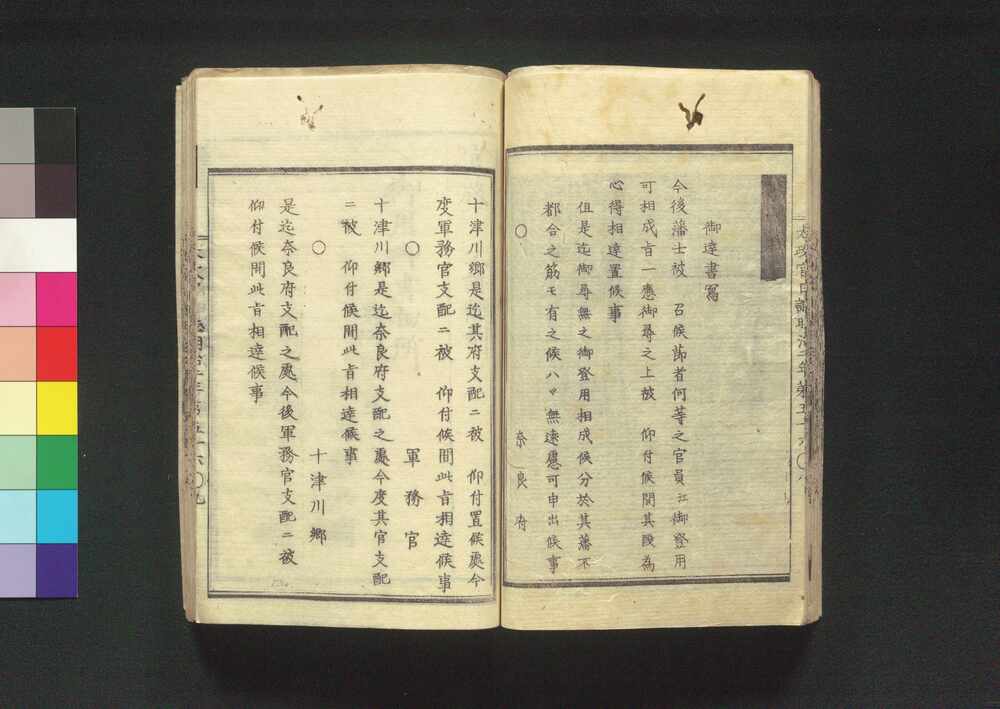 御達書寫
今後藩士被　召候節者何等之官員江御登用
可相成旨一應御尋之上被　仰付候間其段為
心得相達置候事
但是迄御尋無之御登用相成候分於其藩不
都合之筋モ有之候ハヾ無遠慮可申出候事
〇
奈良府
十津川郷是迄其府支配ニ被　仰付置候處今
度軍務官支配ニ被　仰付候間此旨相達候事
〇
軍務官
十津川郷是迄奈良府支配之處今度其官支配
ニ被　仰付候間此旨相達候事
〇
十津川郷
是迄奈良府支配之處今後軍務官支配ニ被
仰付候間此旨相達候事